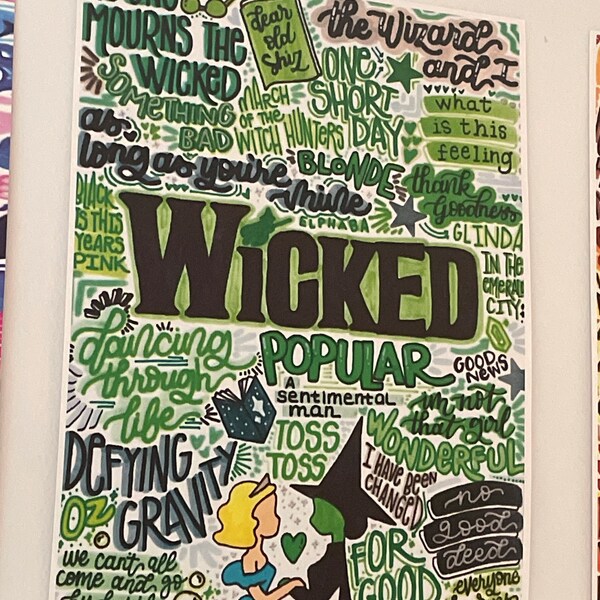 MOURNS THE
WICKED
dear
old
shiz
the Wizard
and I
SOMETHING
BAD
MARCH
OF THE
WITCH HUNTERS
ONE
SHORT
DAY
what
is this
feeling
as
long as you're
mine
BLONDE
thank
Goodness
ELPHABA
GLINDA
BLACK
IS THIS
YEARS
PINK
WICKED
IN THE
EMERALD
CITY
Dancing
through
life
POPULAR
GOOD
NEWS
A
sentimental
man
TOSS
TOSS
i'm not
that girl
WONDERFUL
DEFYING
GRAVITY
I HAVE BEEN
CHANGED
no
good
deed
OZ
we can't all
come and go
FOR
GOOD
everyone